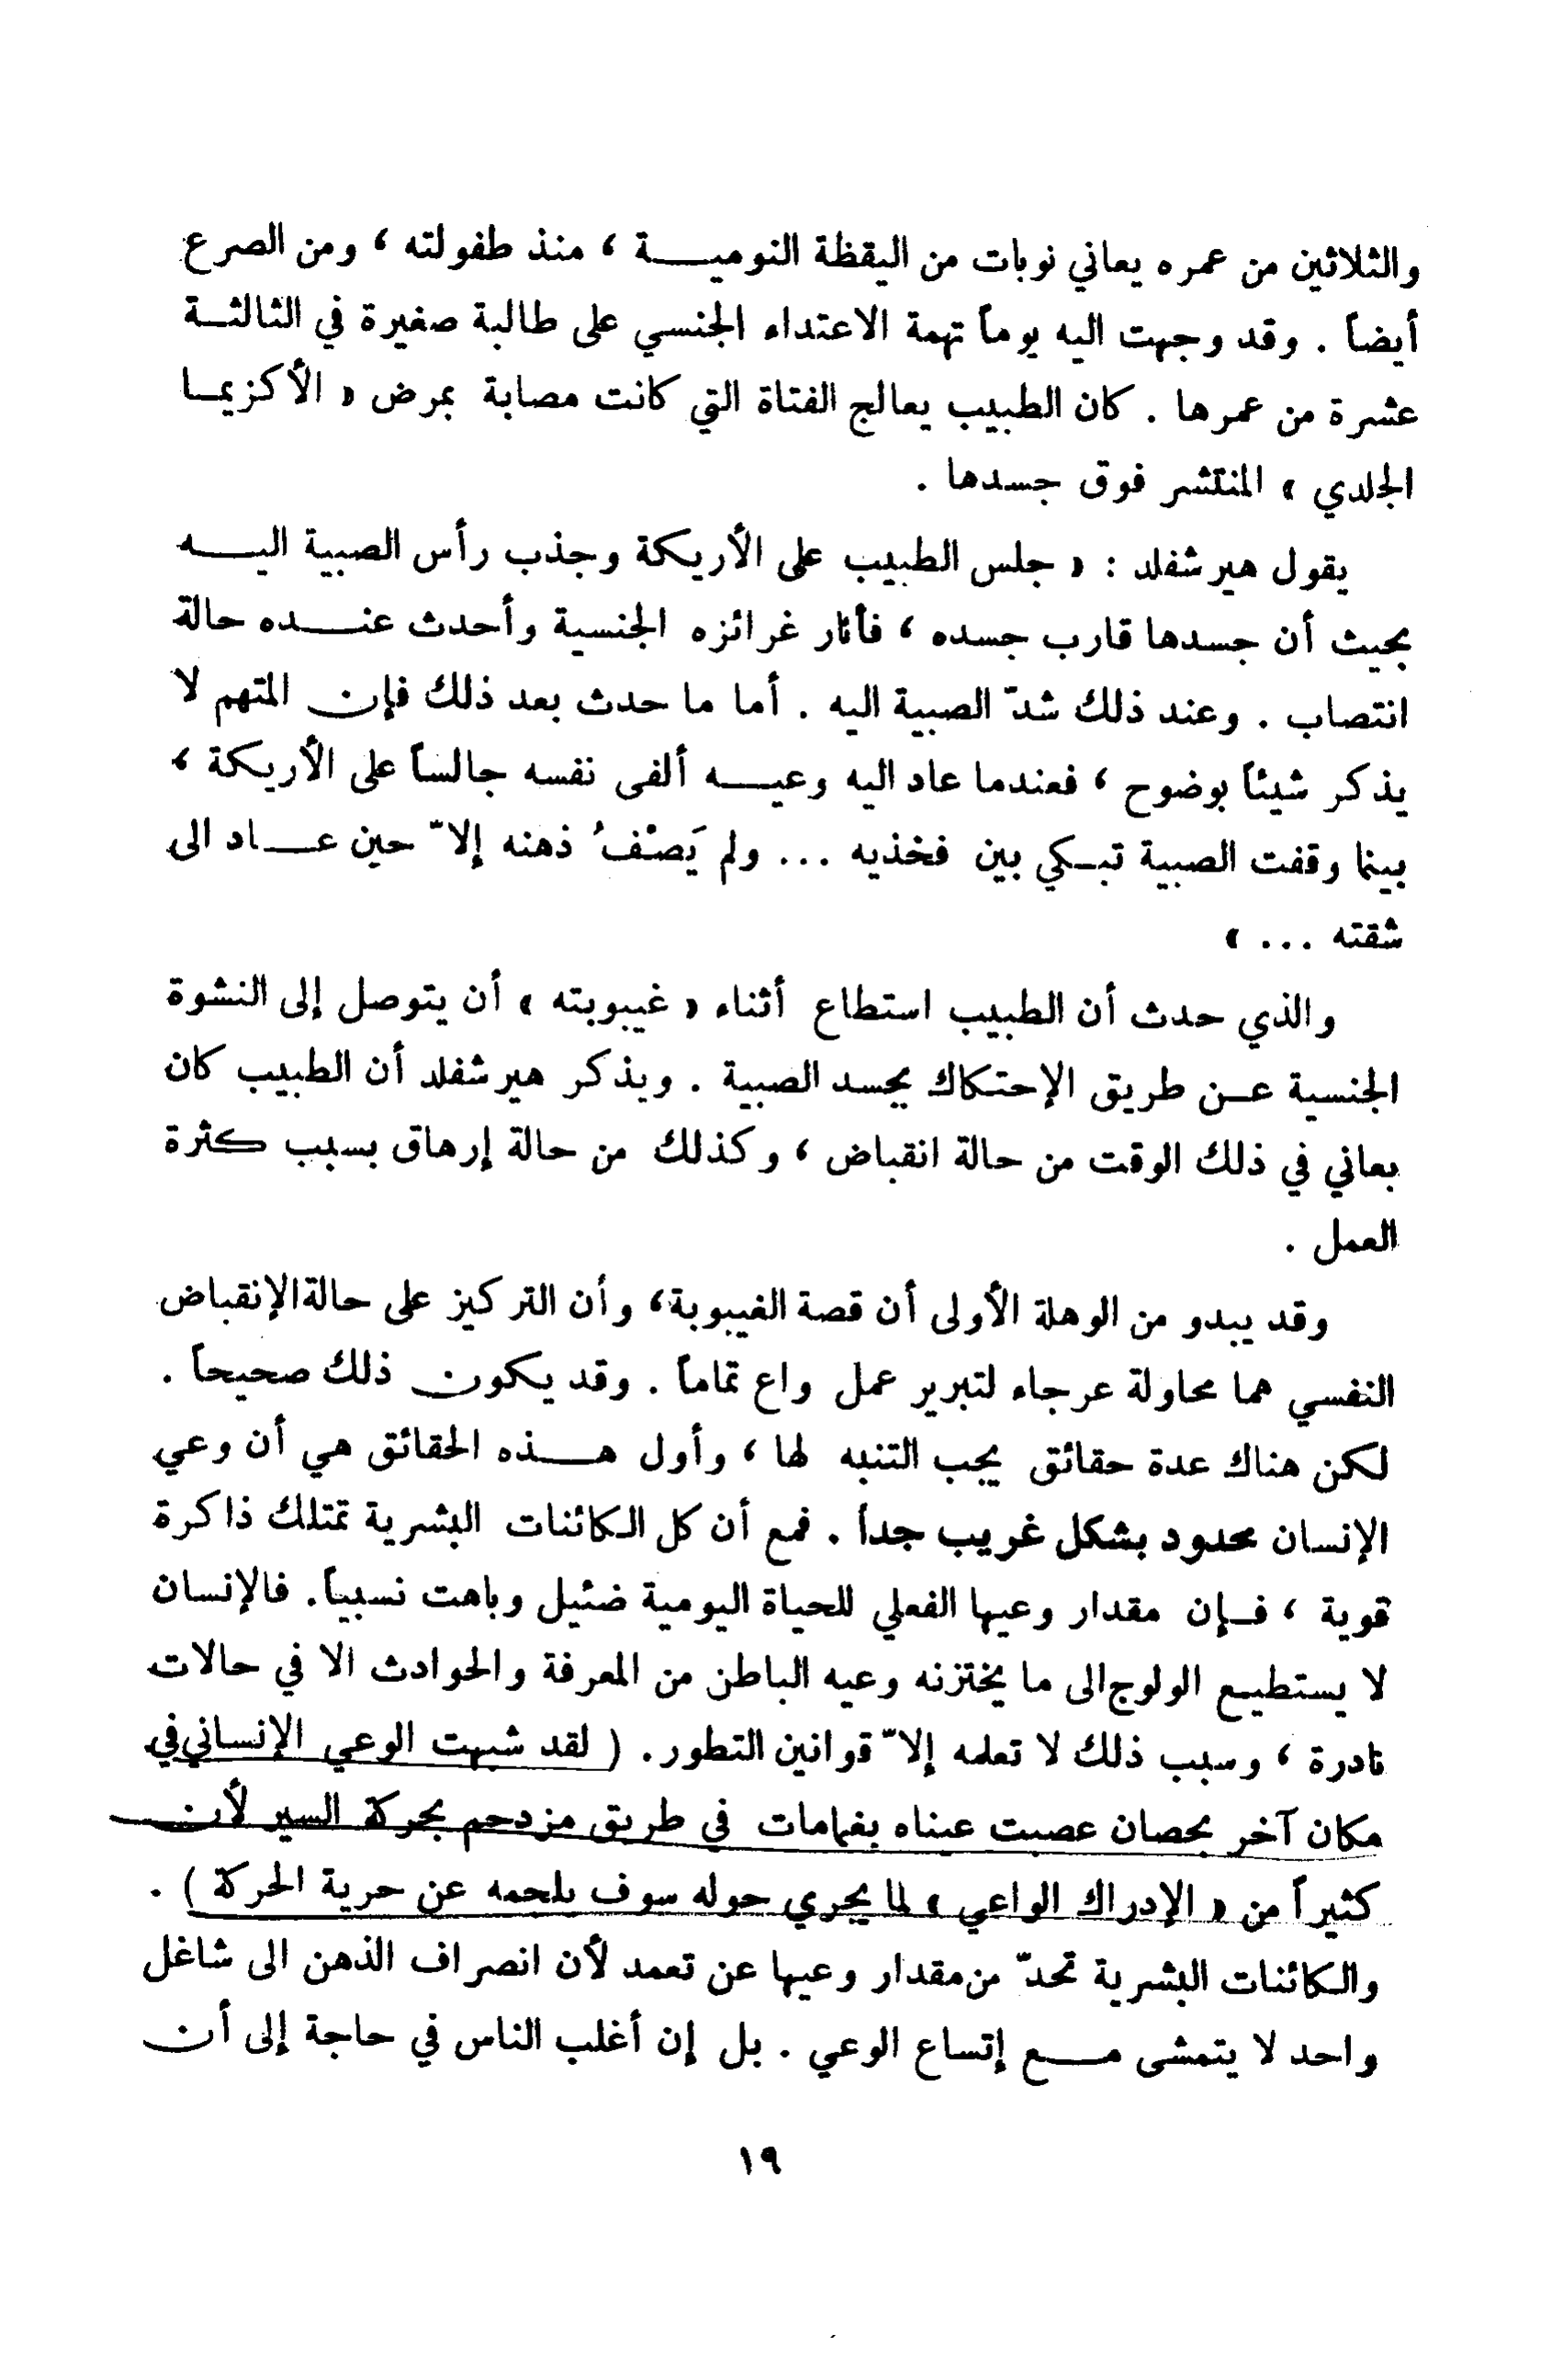 والثلاثين من عمره يعاني نوبات من اليقظة النوميـــة ، منذ طفولته ، ومن الصرع
أيضاً . وقد وجهت اليه يوماً تهمة الاعتداء الجنسي على طالبة صغيرة في الثالثـة
عشرة من عمرها . كان الطبيب يعالج الفتاة التي كانت مصابة بمرض « الأكزيمـا
الجلدي » المنتشر فوق جسدها .
يقول هيرشفلد : « جلس الطبيب على الأريكة وجذب رأس الصبية اليـــه
بحيث أن جسدها قارب جسده ، فأثار غرائزه الجنسية وأحدث عنـــده حالة
انتصاب . وعند ذلك شدّ الصبية اليه . أما ما حدث بعد ذلك فإن المتهم لا
يذكر شيئاً بوضوح ، فعندما عاد اليه وعيـــه ألفى نفسه جالساً على الأريكة ،
بينما وقفت الصبية تبـكي بين فخذيه ... ولم يَصْفُ ذهنه إلاّ حين عـــاد الى
شقته ... »
والذي حدث أن الطبيب استطاع أثناء « غيبوبته » أن يتوصل إلى النشوة
الجنسية عـن طريق الإحتكاك بجسد الصبية . ويذكر هيرشفلد أن الطبيب كان
يعاني في ذلك الوقت من حالة انقباض ، وكذلك من حالة إرهاق بسبب كثرة
العمل .
وقد يبدو من الوهلة الأولى أن قصة الغيبوبة، وأن التركيز على حالة الإنقباض
النفسي هما محاولة عرجاء لتبرير عمل واع تماماً . وقد يكون ذلك صحيحاً .
لكن هناك عدة حقائق يجب التنبه لها ، وأول هـــذه الحقائق هي أن وعي
الإنسان محدود بشكل غريب جداً . فمع أن كل الكائنات البشرية تمتلك ذاكرة
قوية ، فـإن مقدار وعيها الفعلي للحياة اليومية ضئيل وباهت نسبياً. فالإنسان
لا يستطيـع الولوج الى ما يختزنه وعيه الباطن من المعرفة والحوادث الا في حالات
نادرة ، وسبب ذلك لا تعلمه إلاّ قوانين التطور. ( لقد شبهت الوعي الإنساني في
مكان آخر بحصان عصبت عيناه بغمامات في طريق مزدحم بحركة السير لأن
كثيراً من « الإدراك الواعي » لما يجري حوله سوف يلجمه عن حرية الحركة ) .
والكائنات البشرية تحدّ من مقدار وعيها عن تعمد لأن انصراف الذهن الى شاغل
واحد لا يتمشى مـــع إتساع الوعي . بل إن أغلب الناس في حاجة إلى أن
١٩